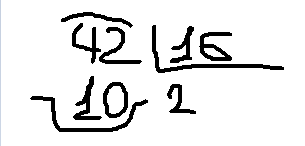 42 16
10 2